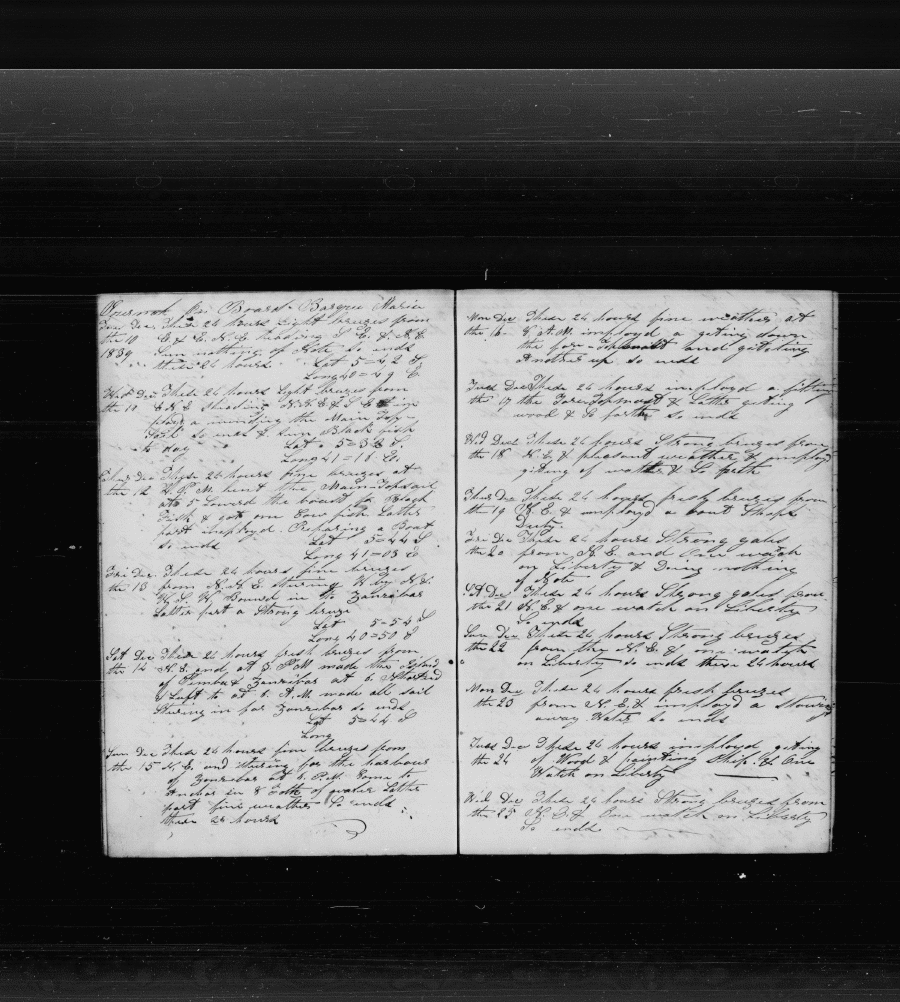 Journal On Board Barque Maria
Tues Dec These 24 hours Light bruzes from
the 10 E & E. N. E heading S E. & N E
1839 Saw nothing of Note So ends
these 24 hours. Lat 5=42 S
Long 40=49 E
Wed Dec These 24 hours Light bruzes from
the 11 E N E N N E & S E
a mending the Main Top
Sail So ends & Saw Black fish
to day Lat 5=38 S
Long 41=18 E
Thurs Dec These 24 hours fine bruzes at
the 12 P. M. bent the Main Topsail
at 5 Lowerd the boats for Black
Fish & got one Cow fish Latter
part imployd Preparing a Boat
So ends Lat 5=44 S
Long 41=03 E
Fri Dec These 24 hours fine bruzes
the 13 from N. N E. sturing W by N &
W. S. W Bound in to Zanzibar
Latter part a Strong bruze
Lat 5=54 S
Long 40=50 E
Sat Dec These 24 hours fresh bruzes from
the 14 N. E. and at 5 P M made the Island
of Pemba & Zanzibar at 6. Shortned
& Luft to at 6. A. M. made all sail
Sturing in for Zanzibar so ends
Lat 5=44 S
Long
Sun Dec These 24 hours fine bruzes from
the 15 N. E. and sturing for the harbour
of Zanzibar at 6 P.M. Came to
Anchor in 8 of water Latter
part fine weather So ends
these 24 hours
Mon Dec These 24 hours fine weather at
the 16 8 A M. imployd a geting down
the fore Topmast and getting
Another up So ends
Tues Dec These 24 hours imployd a fitting
the 17 the Fore Topmast & Latter geting
wood & So forth So ends
Wed Dec These 24 hours Strong bruzes from
the 18 N. E & pleasant weather & imployd
giting of water & So forth
Thurs Dec These 24 hours fresh bruzes from
the 19 N. E. & imployd a bout Ships
Duty
Fri Dec These 24 hours Strong gales
the 20 from N. E. and One watch
on Liberty & Doing nothing
of Note
Sat Dec These 24 hours Strong gales from
the 21 N. E & one watch on Liberty
So ends
Sun Dec These 24 hours Strong bruzes
the 22 from the N. E. & one watch
on Liberty So ends these 24 hours
Mon Dec These 24 hours fresh bruzes
the 23 from N. E & imployd a Stowing
away Water So ends
Tues Dec These 24 hours imployd geting
the 24 of Wood & painting Ship. & One
Watch on Liberty
Wed Dec These 24 hours Strong bruzes from
the 25 N. E & One watch on Liberty
So ends